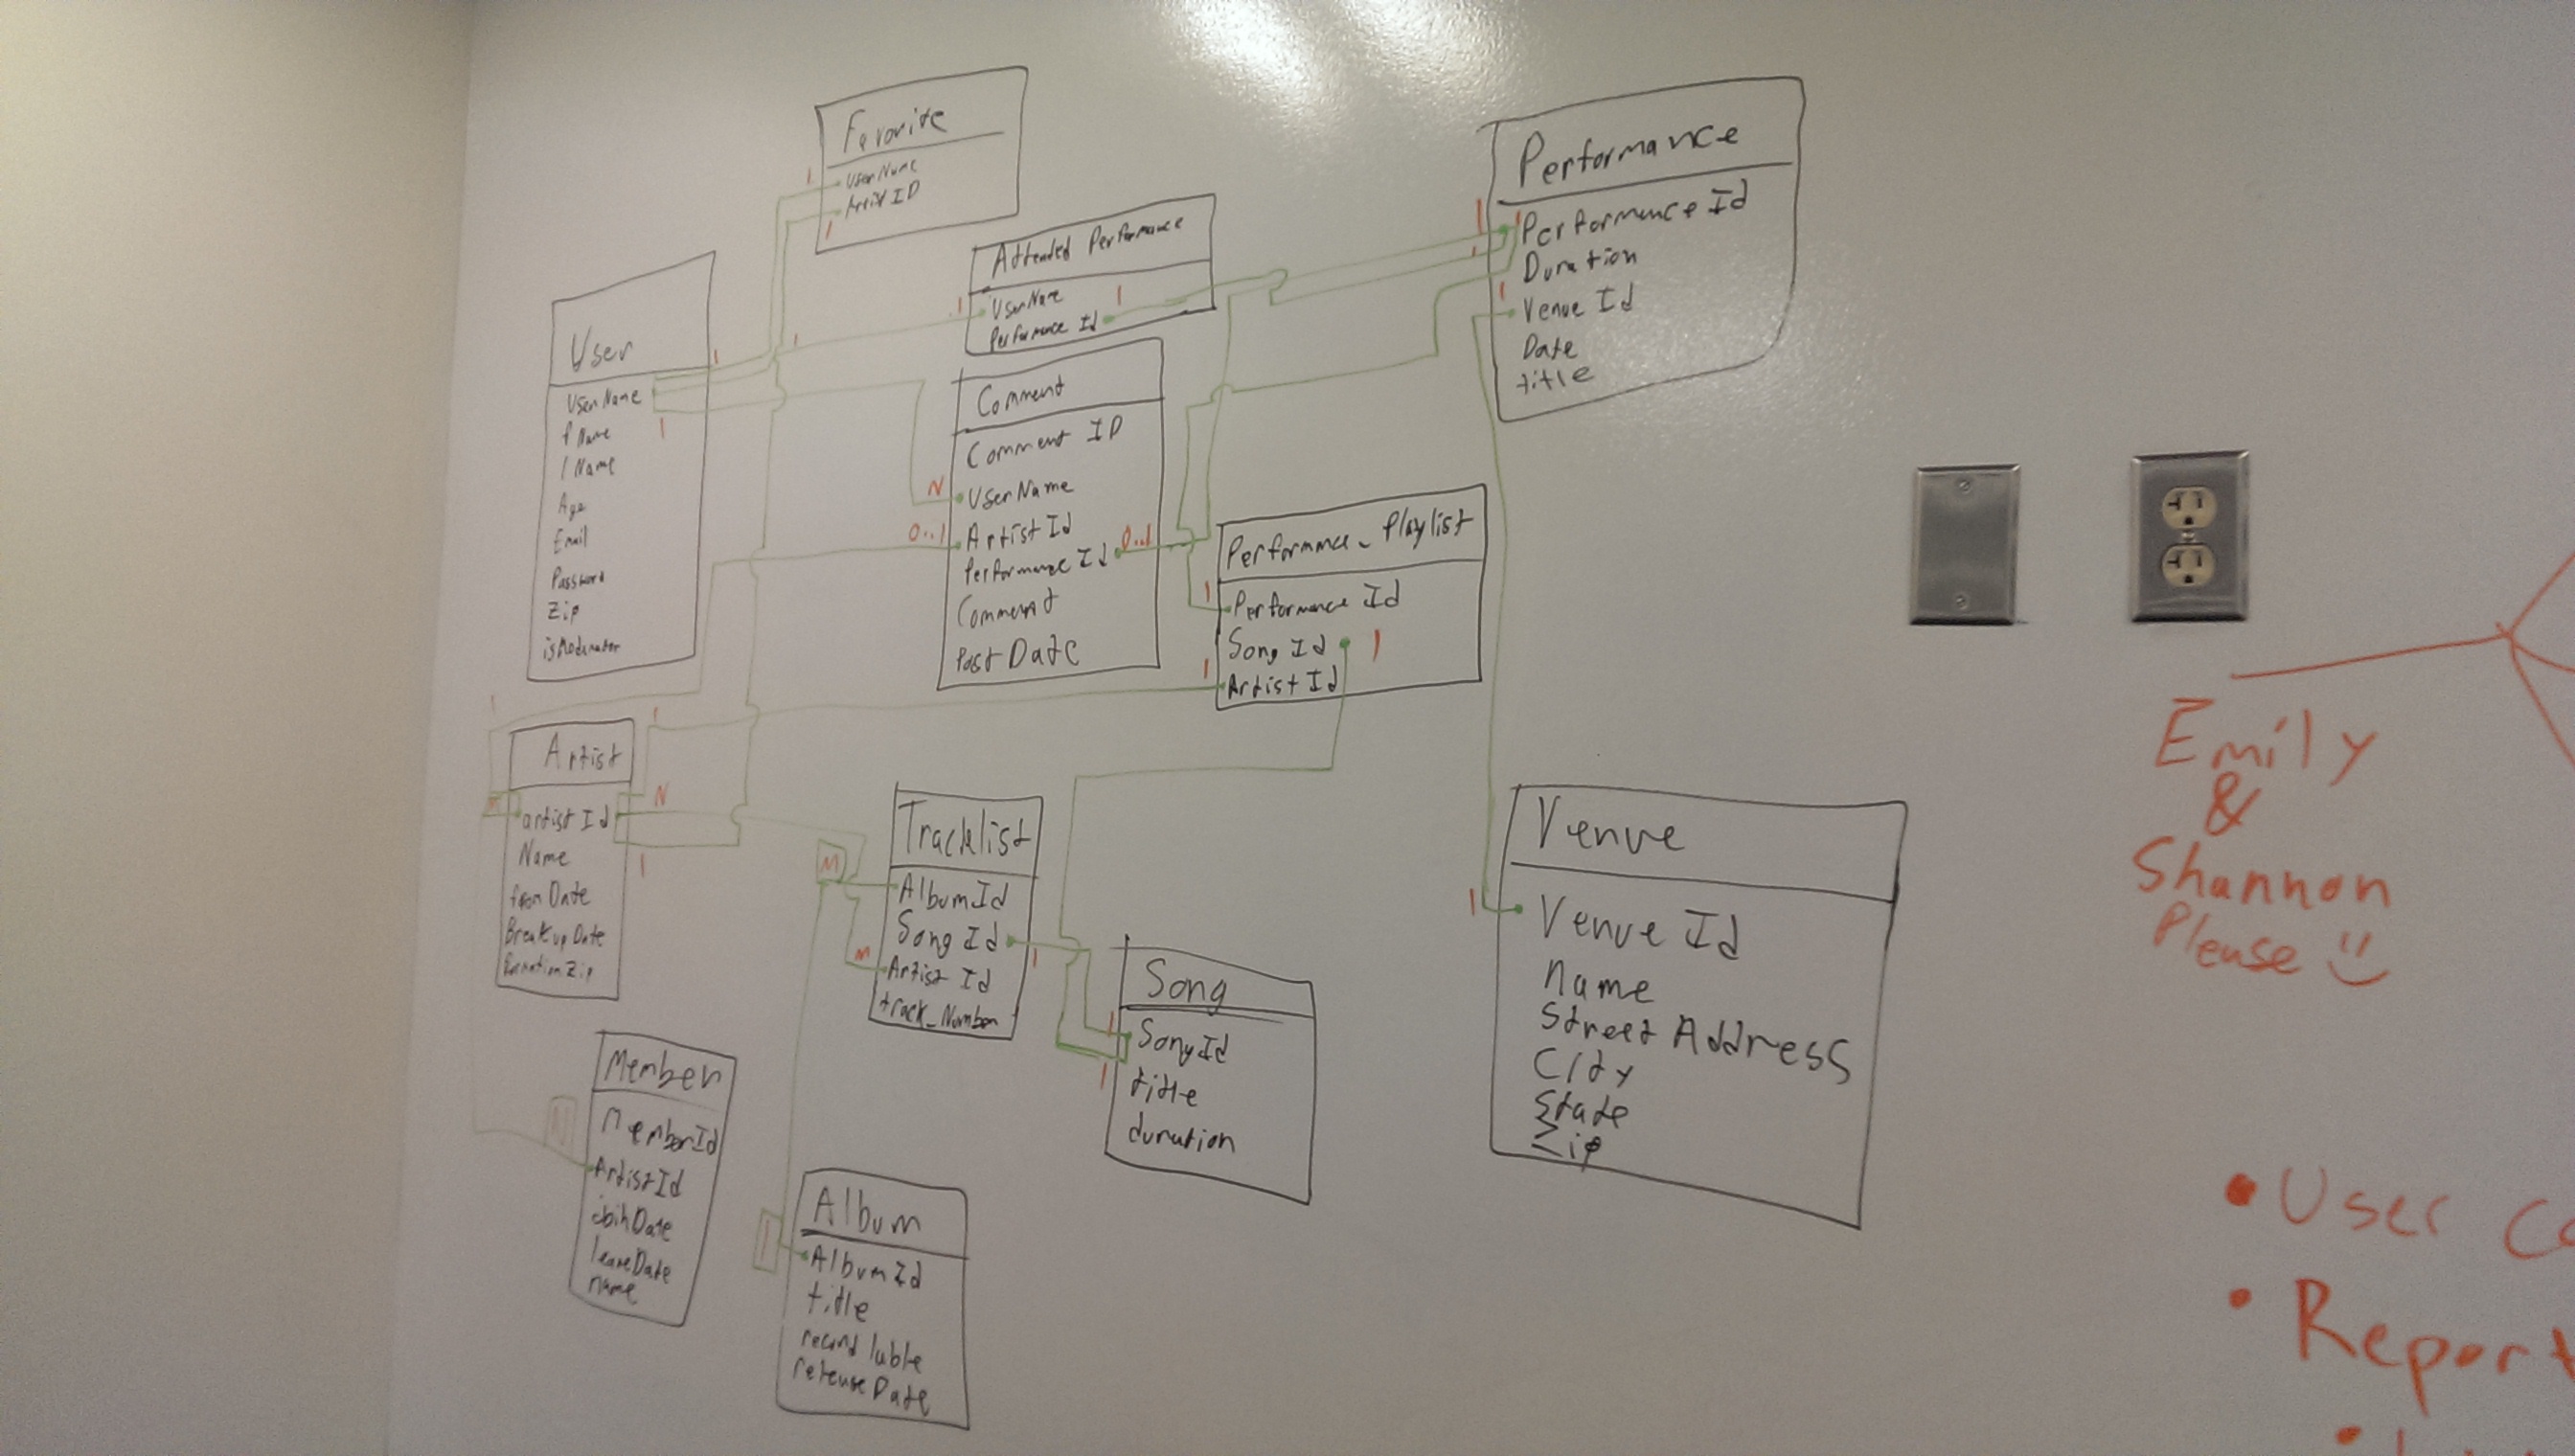 Favorite
UserName
Artist ID
Attended Performance
UserName
Performance Id
Performance
Performance Id
Duration
Venue Id
Date
title
User
UserName
fName
lName
Age
Email
Password
Zip
isModerator
Comment
Comment ID
UserName
Artist Id
Performance Id
Comment
Post Date
Performance_Playlist
Performance Id
Song Id
Artist Id
Artist
artist Id
Name
formDate
BreakupDate
Tracklist
AlbumId
Song Id
Artist Id
track_Number
Song
SongId
title
duration
Venue
Venue Id
Name
Street Address
City
State
Zip
Member
MemberId
ArtistId
leaveDate
name
Album
AlbumId
title
record lable
releaseDate
1
1
1
1
1
1
1
1
1
1
N
0..1
0..1
1
1
1
1
1
N
1
M
M
1
1
1
1
Emily
&
Shannon
Please
• User Co
• Report